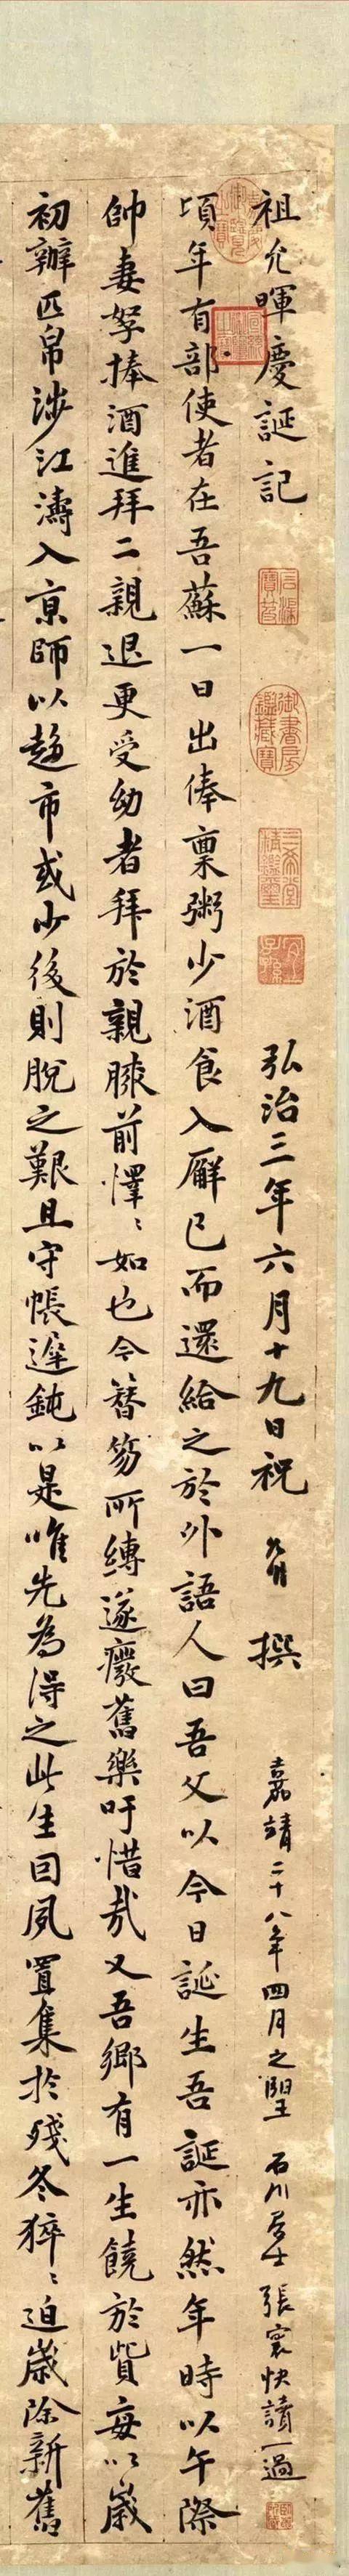 祖允暉慶誕記
弘治三年六月十九日祝允明撰
嘉靖二十八年四月之望 石川居士張寰快讀一過
頃年有部使者在吾蘇一日出俸稟粥少酒食入廨已而還給之於外語人曰吾父以今日誕生吾誕亦然年時以午際
帥妻孥捧酒進拜二親退更受幼者拜於親膝前懌〻如也今簪笏所縛遂癈舊樂吁惜哉又吾鄉有一生饒於貲每以歲
初辦匹帛涉江濤入京師以趍市或少後則脫之艱且守帳遲鈍以是唯先為得之此生囙夙置集於殘冬猝〻迫歲除新舊
御書房鑑藏寶
三希堂精鑑璽
宜子孫
石渠寶笈